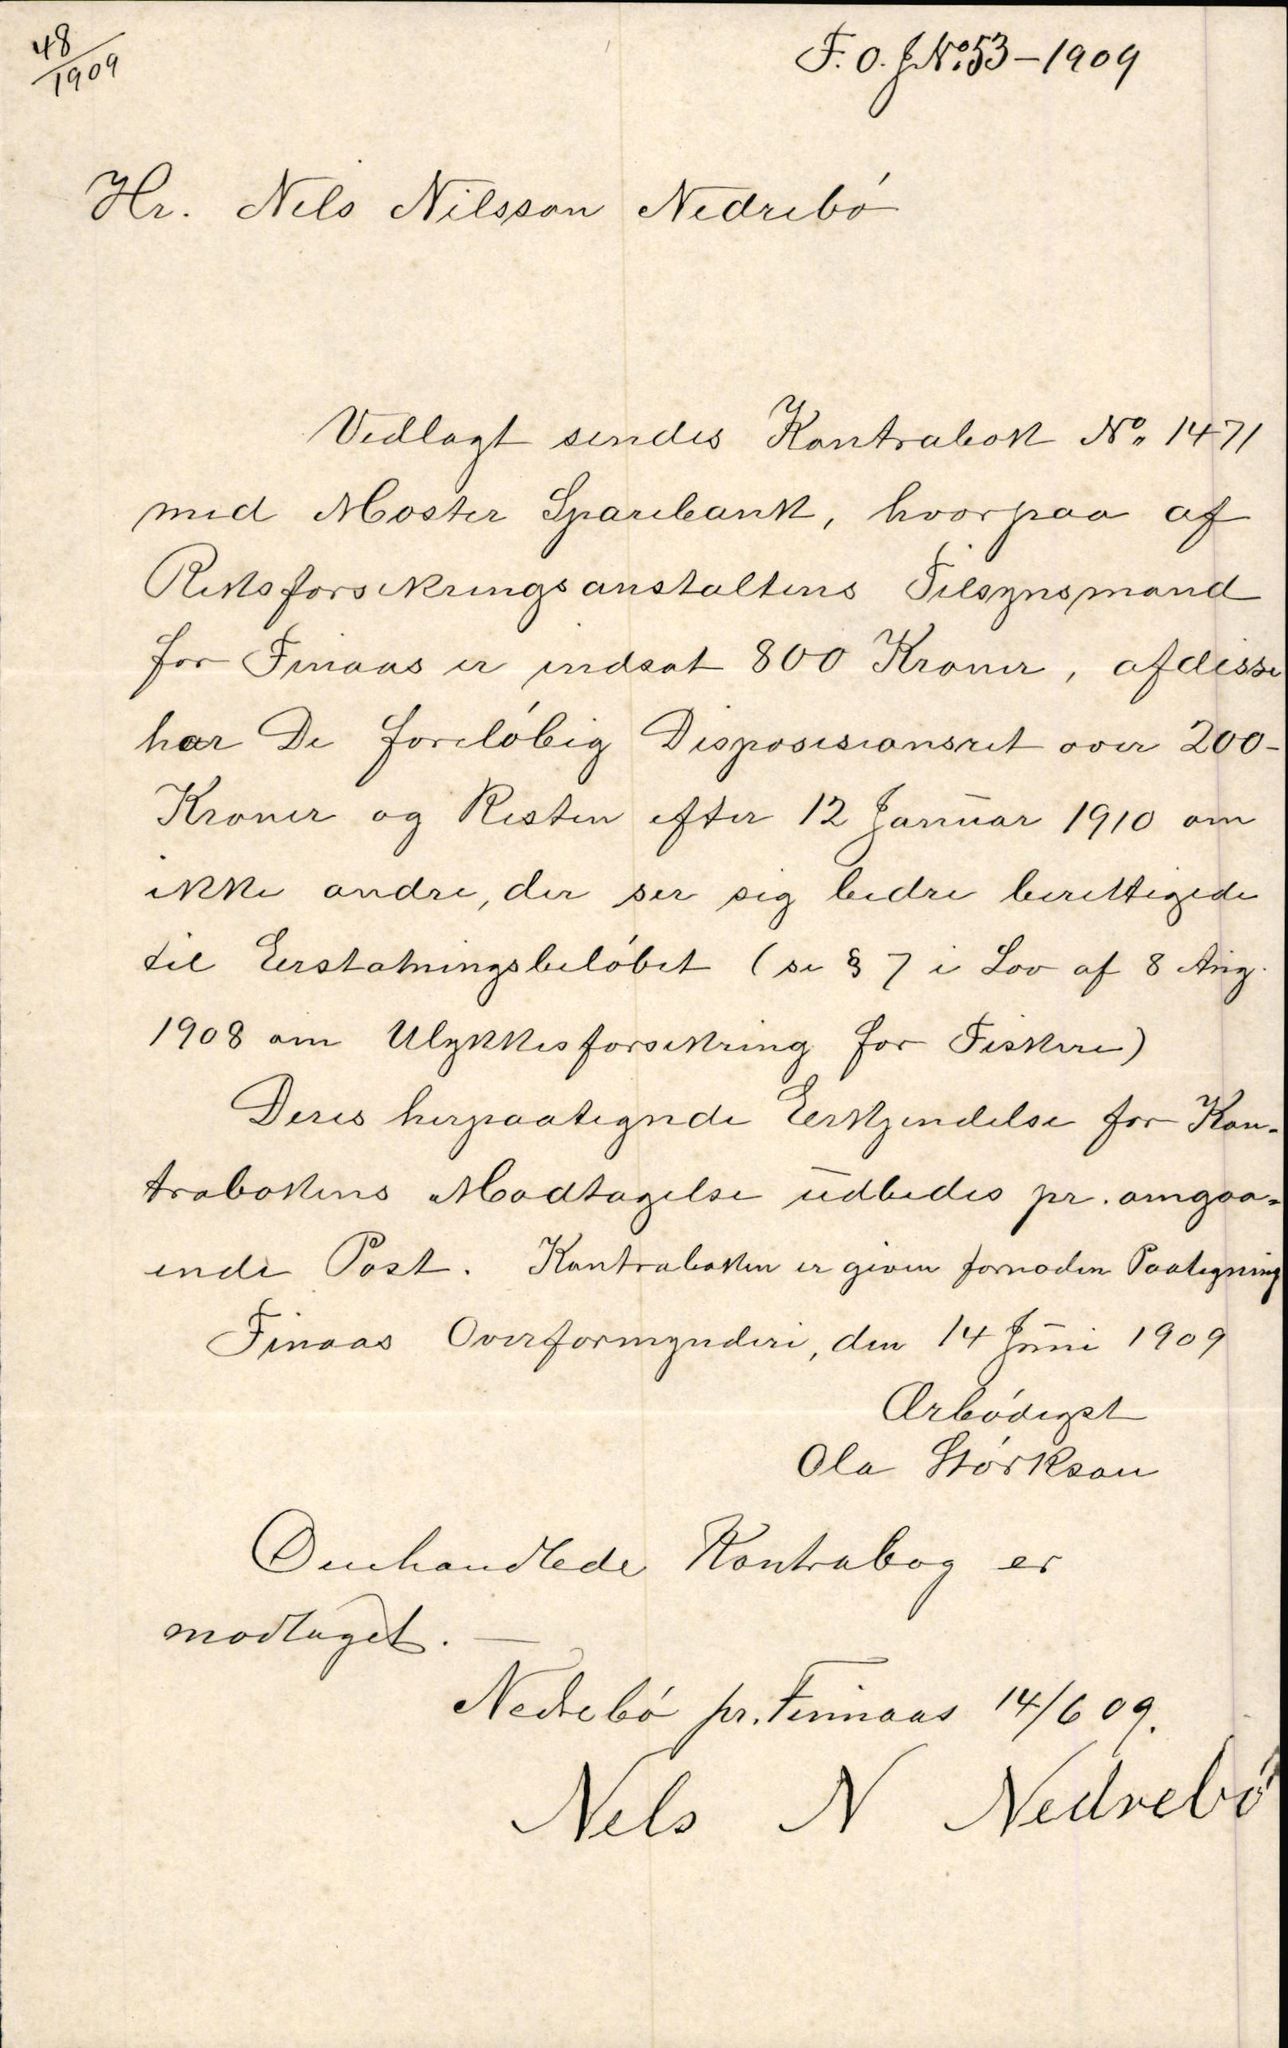 48/1909
F. O. J No. 53 - 1909
Hr. Nels Nilsson Nedrebó
Vedlagt sendes Kontrabok No. 1471
med Moster Sparebank, hvorpaa af
Riksforsikringsanstaltens Tilsynsmand
for Finaas er indsat 800 Kroner, af disse
har De foreløbig Disposisionsret over 200-
Kroner og Resten efter 12 Januar 1910 om
ikke andre, der ser sig bedre berettigede
til Eerstatningsbeløbet (se § 7 i Lov af 8 Aug.
1908 om Ulykkesforsikring for Fiskere)
Deres herpaategnde Eerkjendelse for Kon-
trabokens Modtagelse udbedes pr. omgaa-
ende Post. Kontraboken er given fornøden Paategning
Finaas Overformynderi, den 14 Juni 1909
Ærbødigst
Ola Størkson
Omhandlede Kontrabog er
modtaget. —
Nedrebó pr. Finnaas 14/6 09.
Nels N Nedrebó